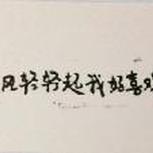 风轻轻起我好喜欢